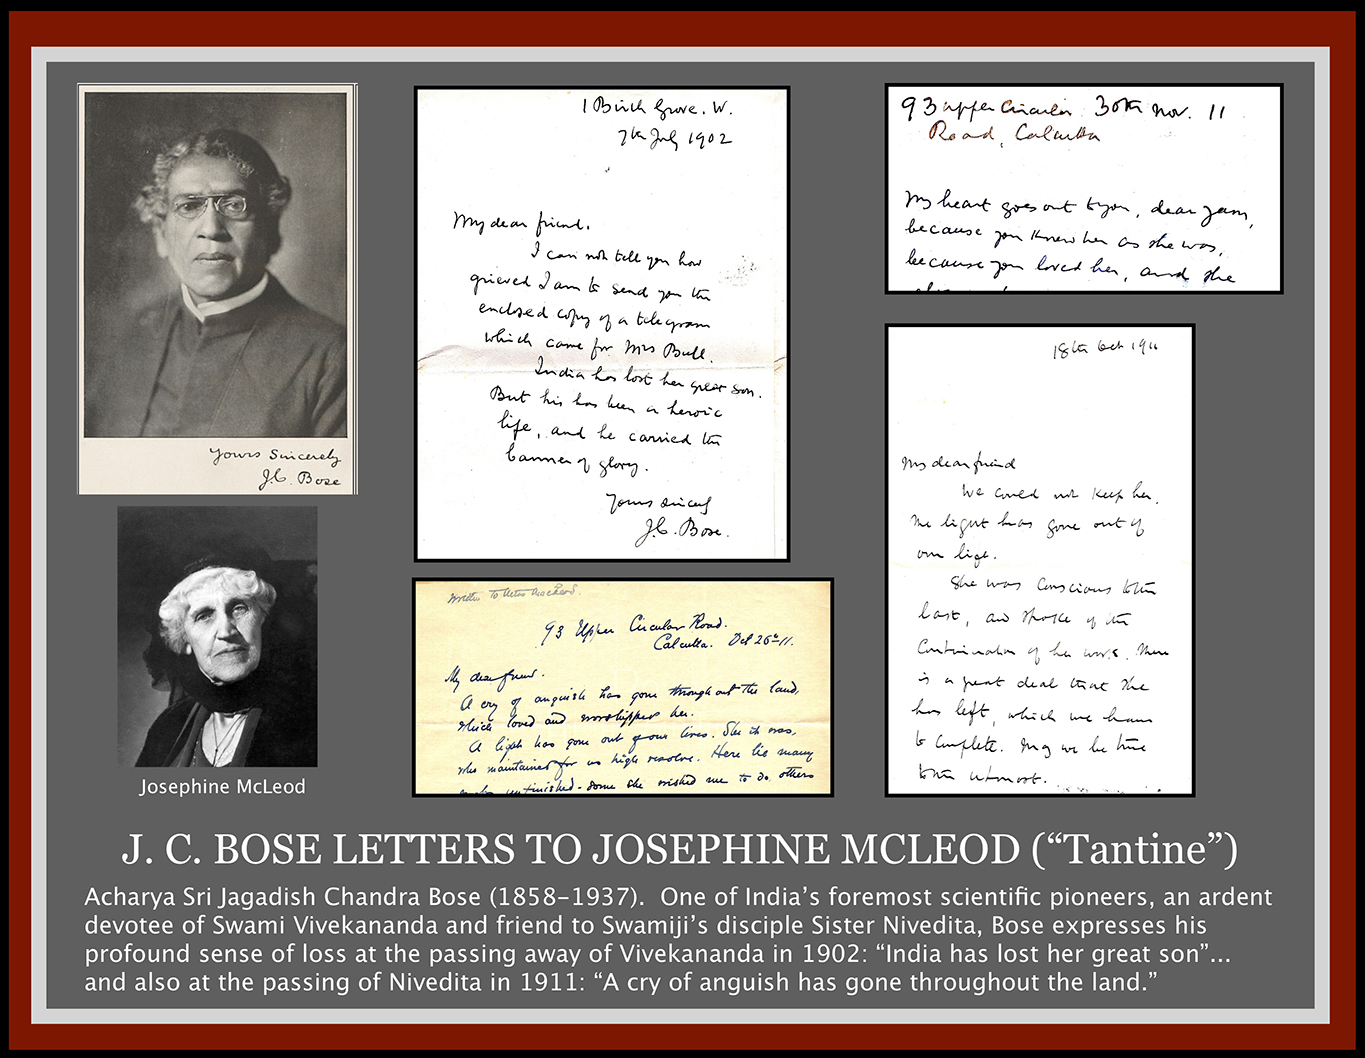 Yours Sincerely
J.C. Bose
Josephine McLeod
1 Birch Grove. W.
7th July 1902
My dear friend.
I can not tell you how
grieved I am to send you the
enclosed copy of a telegram
which came for Mrs Bull.
India has lost her great son.
But his has been a heroic
life, and he carried the
banner of glory.
Yours sincerely
J.C. Bose.
93 Upper Circular Road.
Calcutta. Oct 26th 11.
My dear friend.
A cry of anguish has gone throughout the land,
which loved and worshipped her.
A light has gone out of our lives. She it was,
who maintained for us high resolve. Here lie many
unfinished - some she wished me to do, others
93 upper Circular 30th Nov. 11
Road, Calcutta
My heart goes out to you, dear Yum,
because you knew her as she was,
because you loved her, and she
18th Oct 1911
My dear friend
We could not keep her.
The light has gone out of
our life.
She was conscious to the
last, and spoke of the
continuation of her work. There
is a great deal that she
has left, which we have
to complete. May we be true
to the utmost.
J. C. BOSE LETTERS TO JOSEPHINE MCLEOD (“Tantine”)
Acharya Sri Jagadish Chandra Bose (1858–1937). One of India’s foremost scientific pioneers, an ardent
devotee of Swami Vivekananda and friend to Swamiji’s disciple Sister Nivedita, Bose expresses his
profound sense of loss at the passing away of Vivekananda in 1902: “India has lost her great son”...
and also at the passing of Nivedita in 1911: “A cry of anguish has gone throughout the land.”